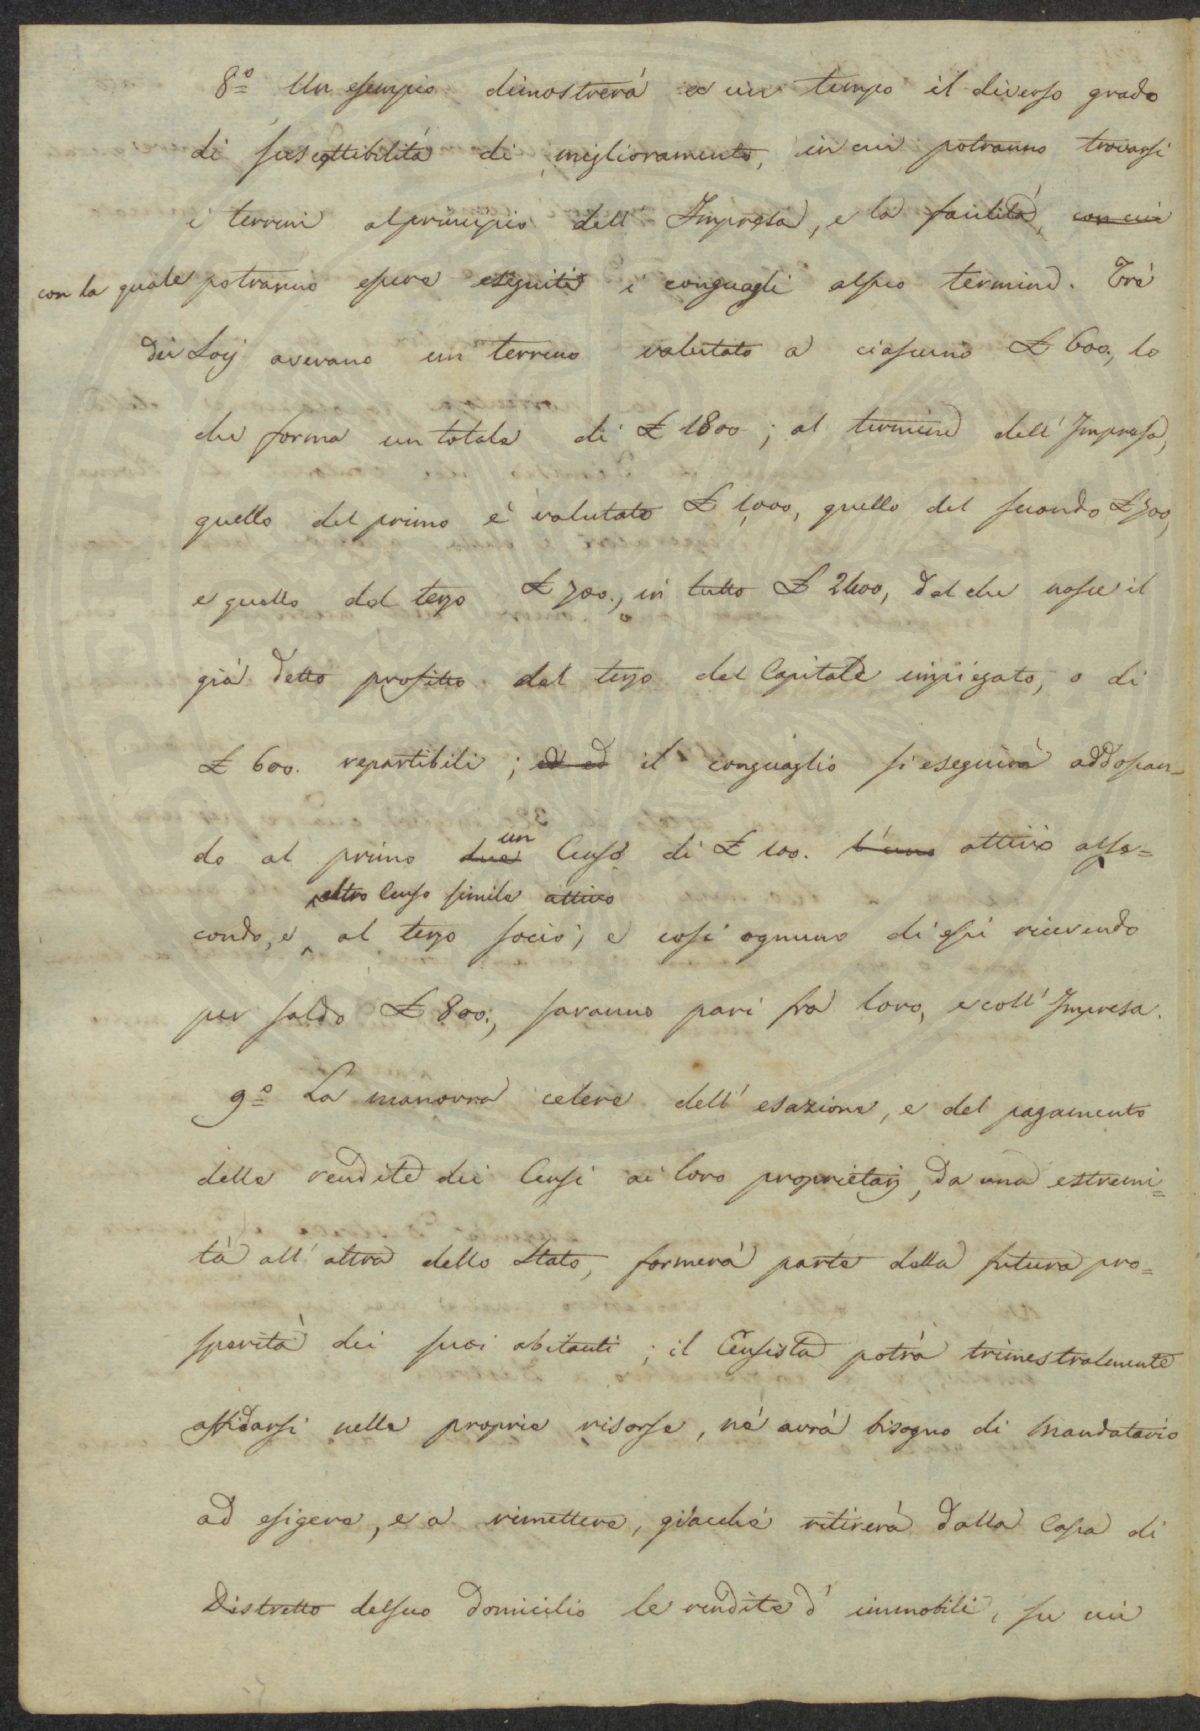 8.º Un esempio dimostrerà a un tempo il diverso grado
di suscettibilità di miglioramento, in cui potranno trovarsi
i terreni al principio dell' Impresa, e la facilità, con cui
con la quale potranno essere eseguiti i conguagli al suo termine. Trè
dei Socj avevano un terreno valutato a ciascuno £ 600., lo
che forma un totale di £ 1800; al termine dell' Impresa,
quello del primo è valutato £ 1,000, quello del secondo £ 700,
e quello del terzo £ 700., in tutto £ 2400, dal che nasce il
già detto profitto del terzo del Capitale impiegato, o di
£ 600. repartibili; ed ed il conguaglio si eseguirà addossan=
do al primo due un Censo di £ 100. l'uno attivo al se=
altro Censo simile attivo
condo, e al terzo socio; e così ognuno di essi ricevendo
per saldo £ 800., saranno pari frà loro, e coll' Impresa.
9.º La manovra celere dell' esazione, e del pagamento
delle rendite dei Censi ai loro proprietarj, da una estremi=
tà all' altra dello Stato, formerà parte della futura pro=
sperità dei suoi abitanti; il Censista potrà trimestralmente
affidarsi nelle proprie risorse, nè avrà bisogno di Mandatario
ad esigere, e a rimettere, giacchè ritirerà dalla Cassa di
Distretto del suo domicilio le rendite d' immobili, su cui